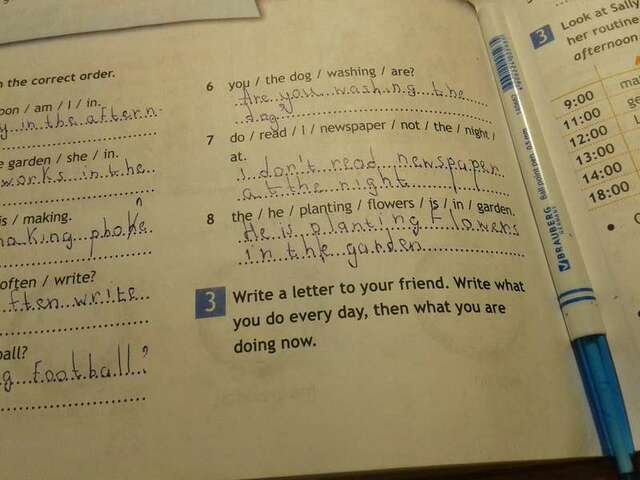 n the correct order.
oon / am / I / in.
y in the aftern.
e garden / she / in.
works in the
is / making.
making
often / write?
ften write
ball?
g football?
6 you / the dog / washing / are?
Are you washing the
dog?
7 do / read / I / newspaper / not / the / night /
at.
I don't read newspaper
at the night
8 the / he / planting / flowers / is / in / garden.
He is planting flowers
in the garden
3 Write a letter to your friend. Write what
you do every day, then what you are
doing now.
BRAUBERG
3 Look at Sally
her routine
afternoon
9:00 ma
11:00 ge
12:00 L
13:00
14:00
18:00